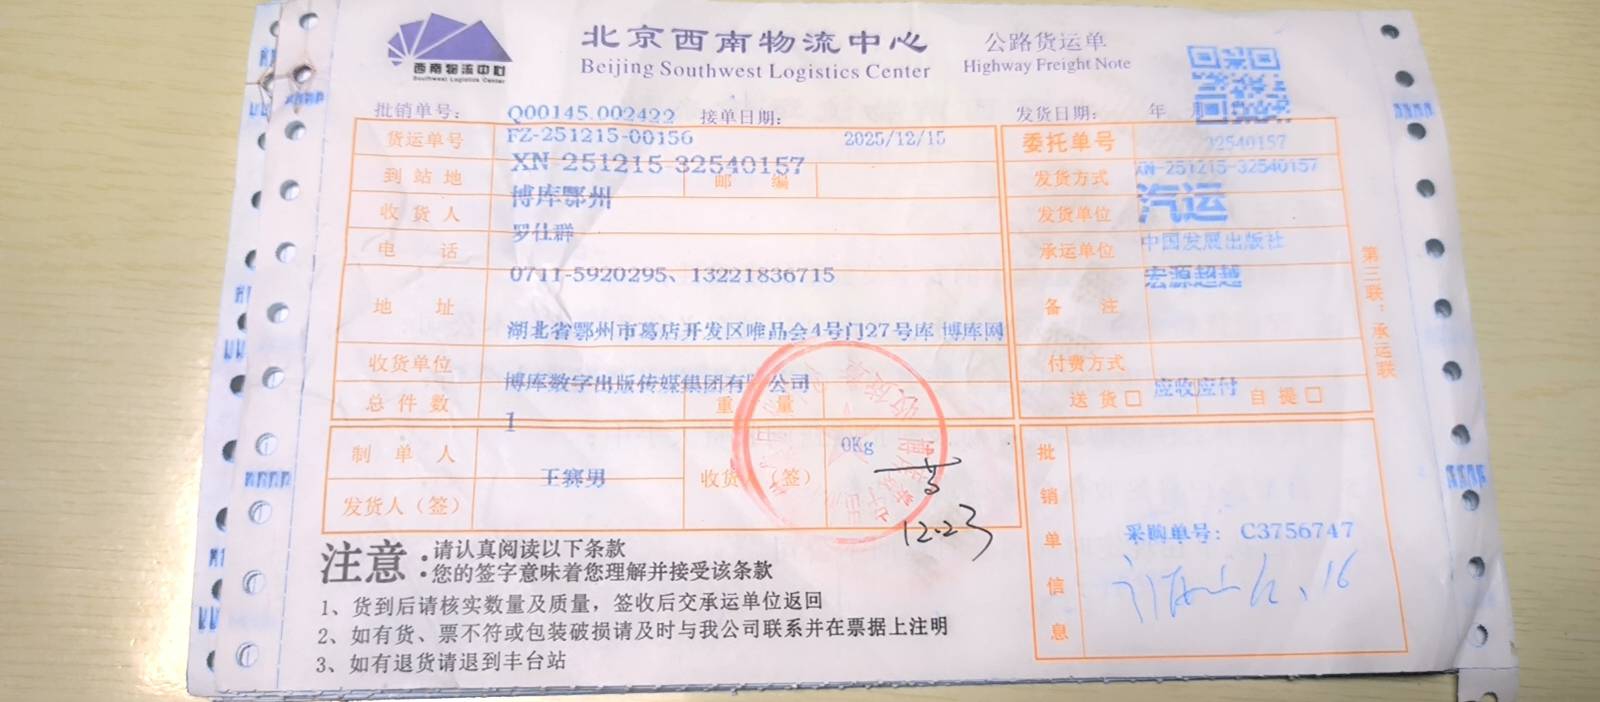 西南物流中心
Southwest Logistics Center
北京西南物流中心
Beijing Southwest Logistics Center
公路货运单
Highway Freight Note
批销单号: Q00145.002422 接单日期: 发货日期: 年 月
货运单号 FZ-251215-00156 2025/12/15 委托单号 32540157
XN-251215-32540157 XN-251215-32540157
到站地 邮编 发货方式
博库鄂州 汽运
收货人 发货单位
罗仕群 中国发展出版社
电话 承运单位
0711-5920295、13221836715 宏源超越
地址 备注
湖北省鄂州市葛店开发区唯品会4号门27号库 博库网
收货单位 付费方式
博库数字出版传媒集团有限公司 应收应付
总件数 重量 送货□ 自提□
1
0Kg
制单人 收货人(签)
王赛男
12.23
发货人(签)
批销单信息
采购单号: C3756747
第三联:承运联
注意:
请认真阅读以下条款
您的签字意味着您理解并接受该条款
1、货到后请核实数量及质量,签收后交承运单位返回
2、如有货、票不符或包装破损请及时与我公司联系并在票据上注明
3、如有退货请退到丰台站